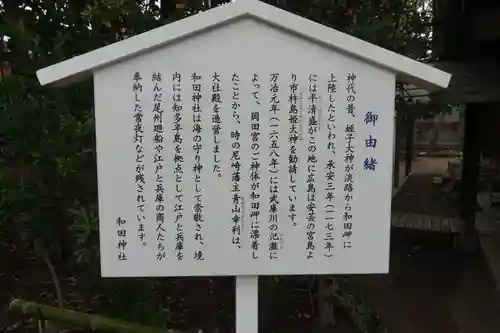 御由緒
神代の昔、蛭子大神が淡路から和田岬に
上陸したといわれ、承安三年（一一七三年）
には平清盛がこの地に広島は安芸の宮島よ
り市杵島姫大神を勧請しています。
万治元年（一六五八年）には武庫川の氾濫に
よって、岡田宮のご神体が和田岬に漂着し
たことから、時の尼崎藩主青山幸利は、
大社殿を造営しました。
和田神社は海の守り神として崇敬され、境
内には知多半島を拠点として江戸と兵庫を
結んだ尾州廻船や江戸と兵庫の商人たちが
奉納した常夜灯などが残されています。
和田神社